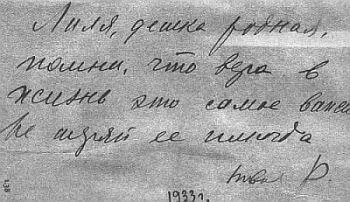 Лиля, детка родная,
помни, что вера в
жизнь это самое важн
Не теряй ее никогда
твоя В.
1933 г.